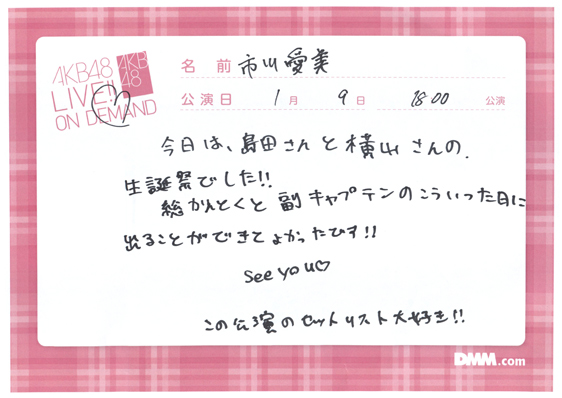 AKB48
LIVE!!
ON DEMAND
AKB
48
名前 市川愛美
公演日 1月 9日 18:00 公演
今日は、島田さんと横山さんの、
生誕祭でした!!
総かんとくと副キャプテンのこういった日に
出ることができてよかったです!!
see you♡
この公演のセットリスト大好き!!
DMM.com